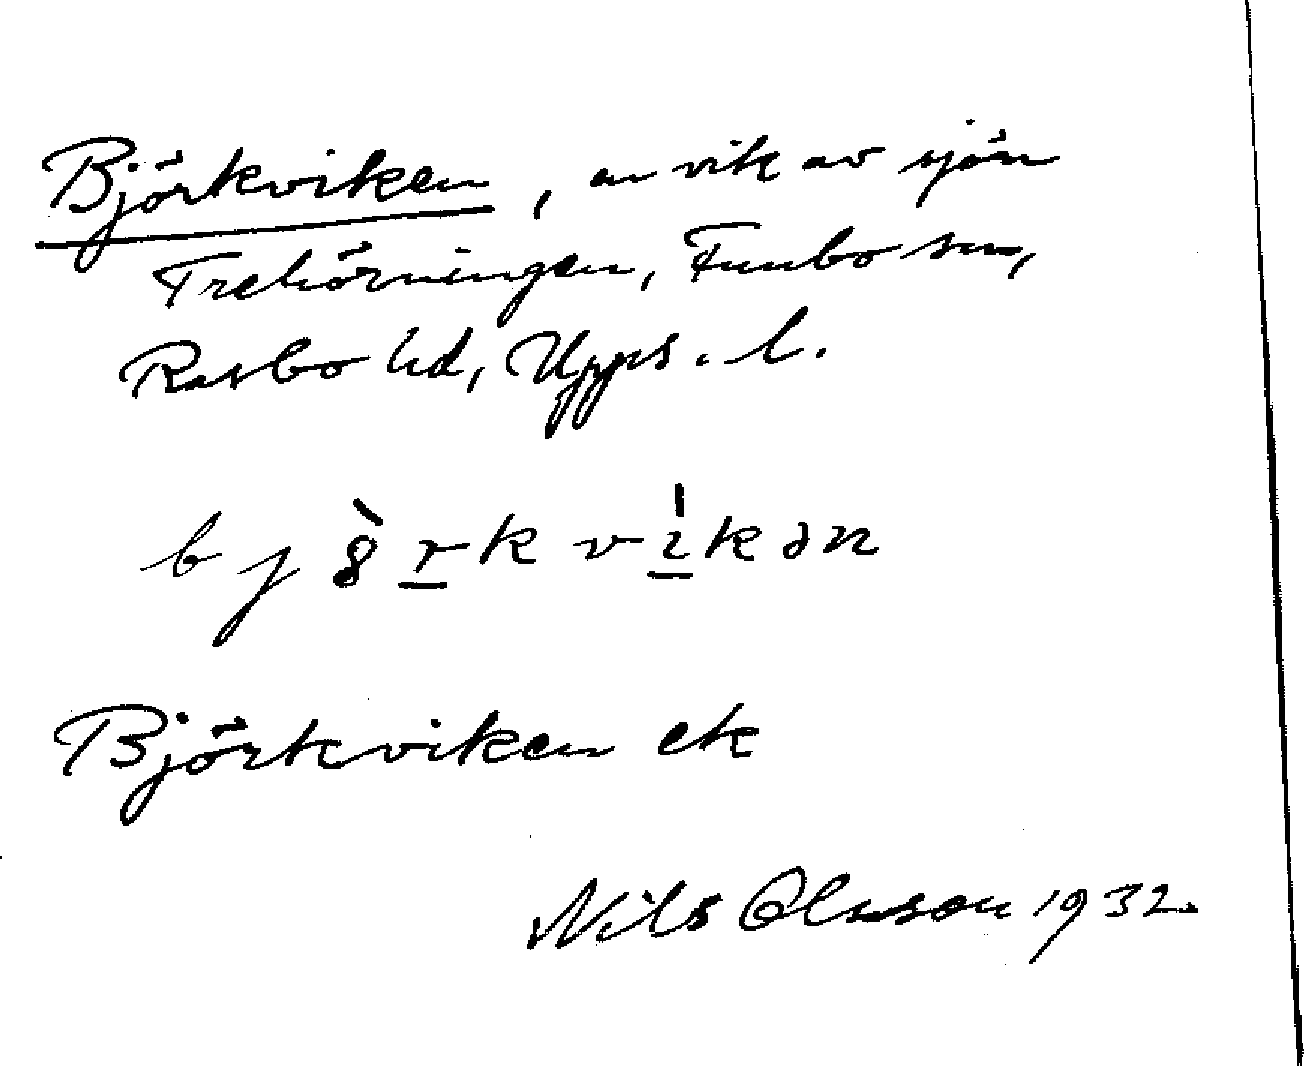 Björkviken, en vik av sjön
Trehörningen, Funbo sn,
Rasbo hd, Upps. l.
bjö̀rkvı̍kən
Björkviken ek
Nils Olsson 1932.